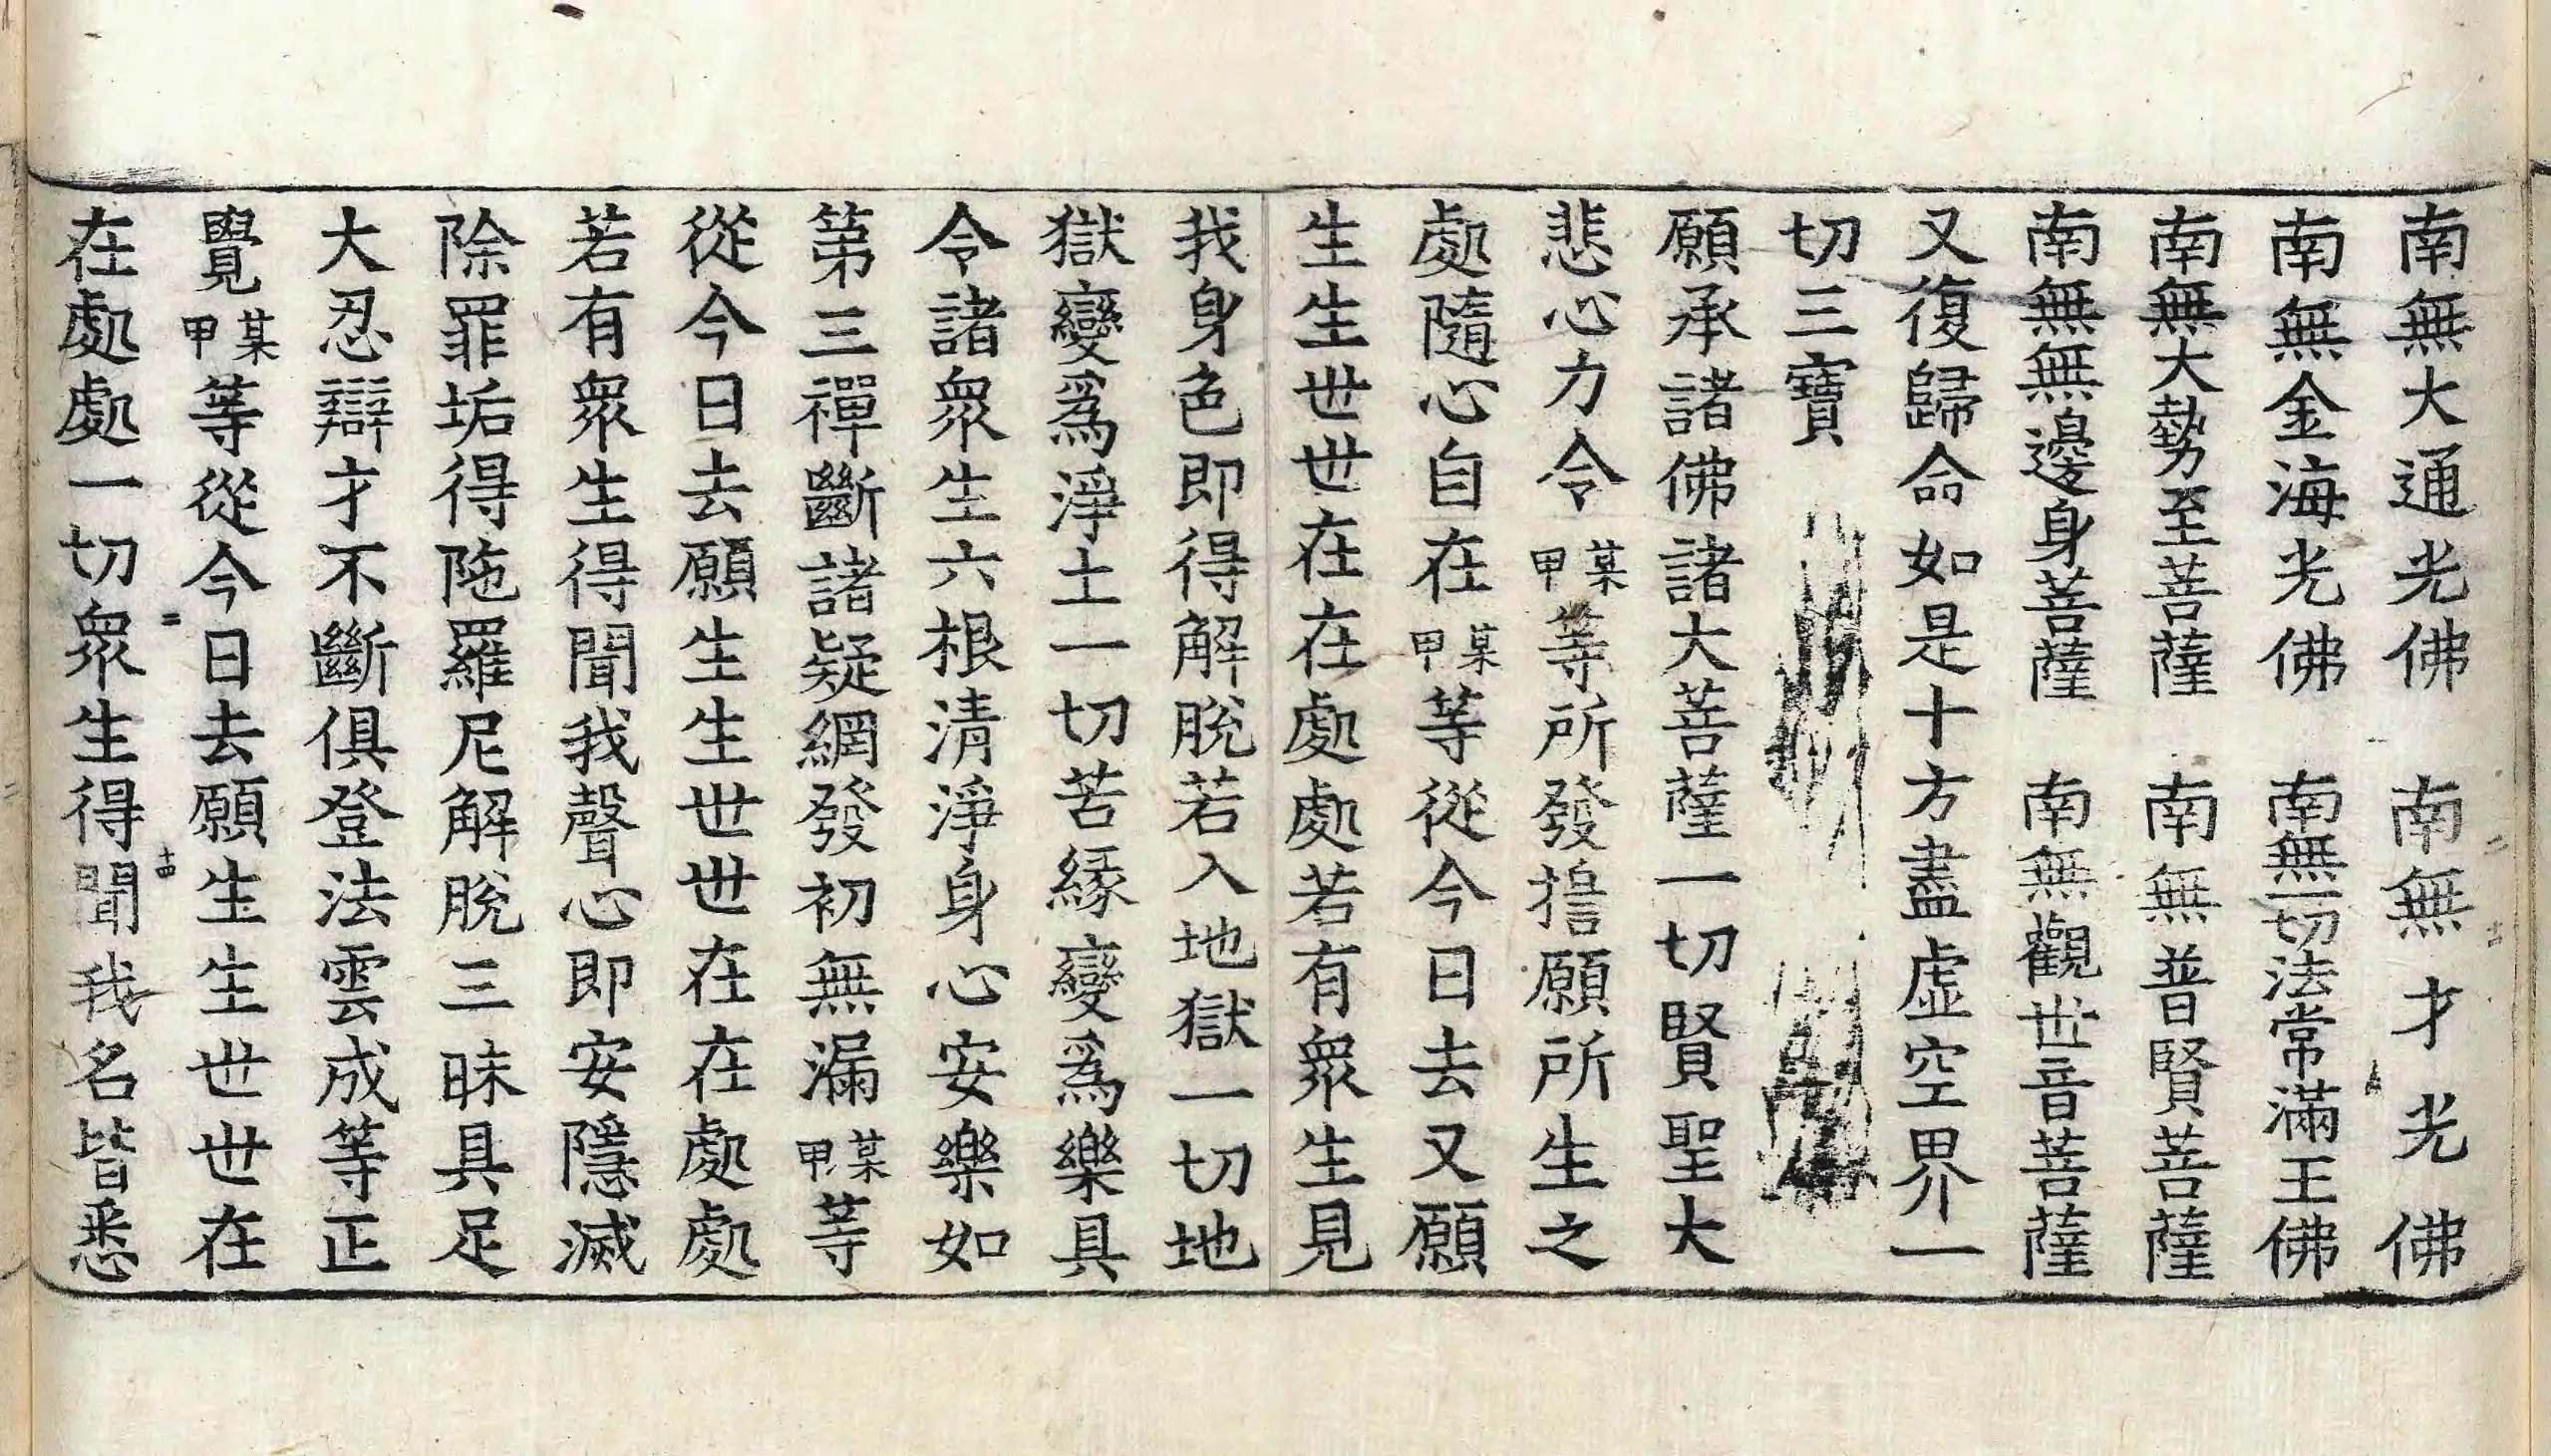 南無大通光佛　南無才光佛
南無金海光佛　南無一切法常滿王佛
南無大勢至菩薩　南無普賢菩薩
南無無邊身菩薩　南無觀世音菩薩
又復歸命如是十方盡虛空界一
切三寶
願承諸佛諸大菩薩一切賢聖大
悲心力令某甲等所發擔願所生之
處隨心自在某甲等從今日去又願
生生世世在在處處若有眾生見
我身色即得解脫若入地獄一切地
獄變爲淨土一切苦緣變爲樂具
令諸眾生六根清淨身心安樂如
第三禪斷諸疑網發初無漏某甲等
從今日去願生生世世在在處處
若有眾生得聞我聲心即安隱滅
除罪垢得陁羅尼解脫三昧具足
大忍辯才不斷俱登法雲成等正
覺某甲等從今日去願生生世世在
在處處一切眾生得聞我名皆悉
二
十四